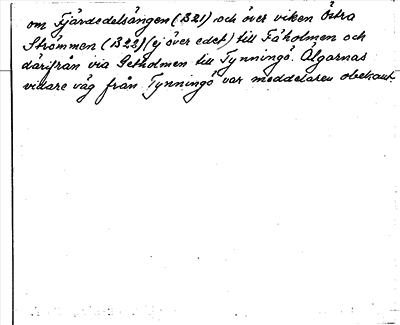 om Fjärdedelsängen (1321) och över viken Östra
Strömmen (1322) (ej över edet) till Fåholmen och
därifrån via Getholmen till Tynningö. Älgarnas
vidare väg från Tynningö var meddelaren obekant.